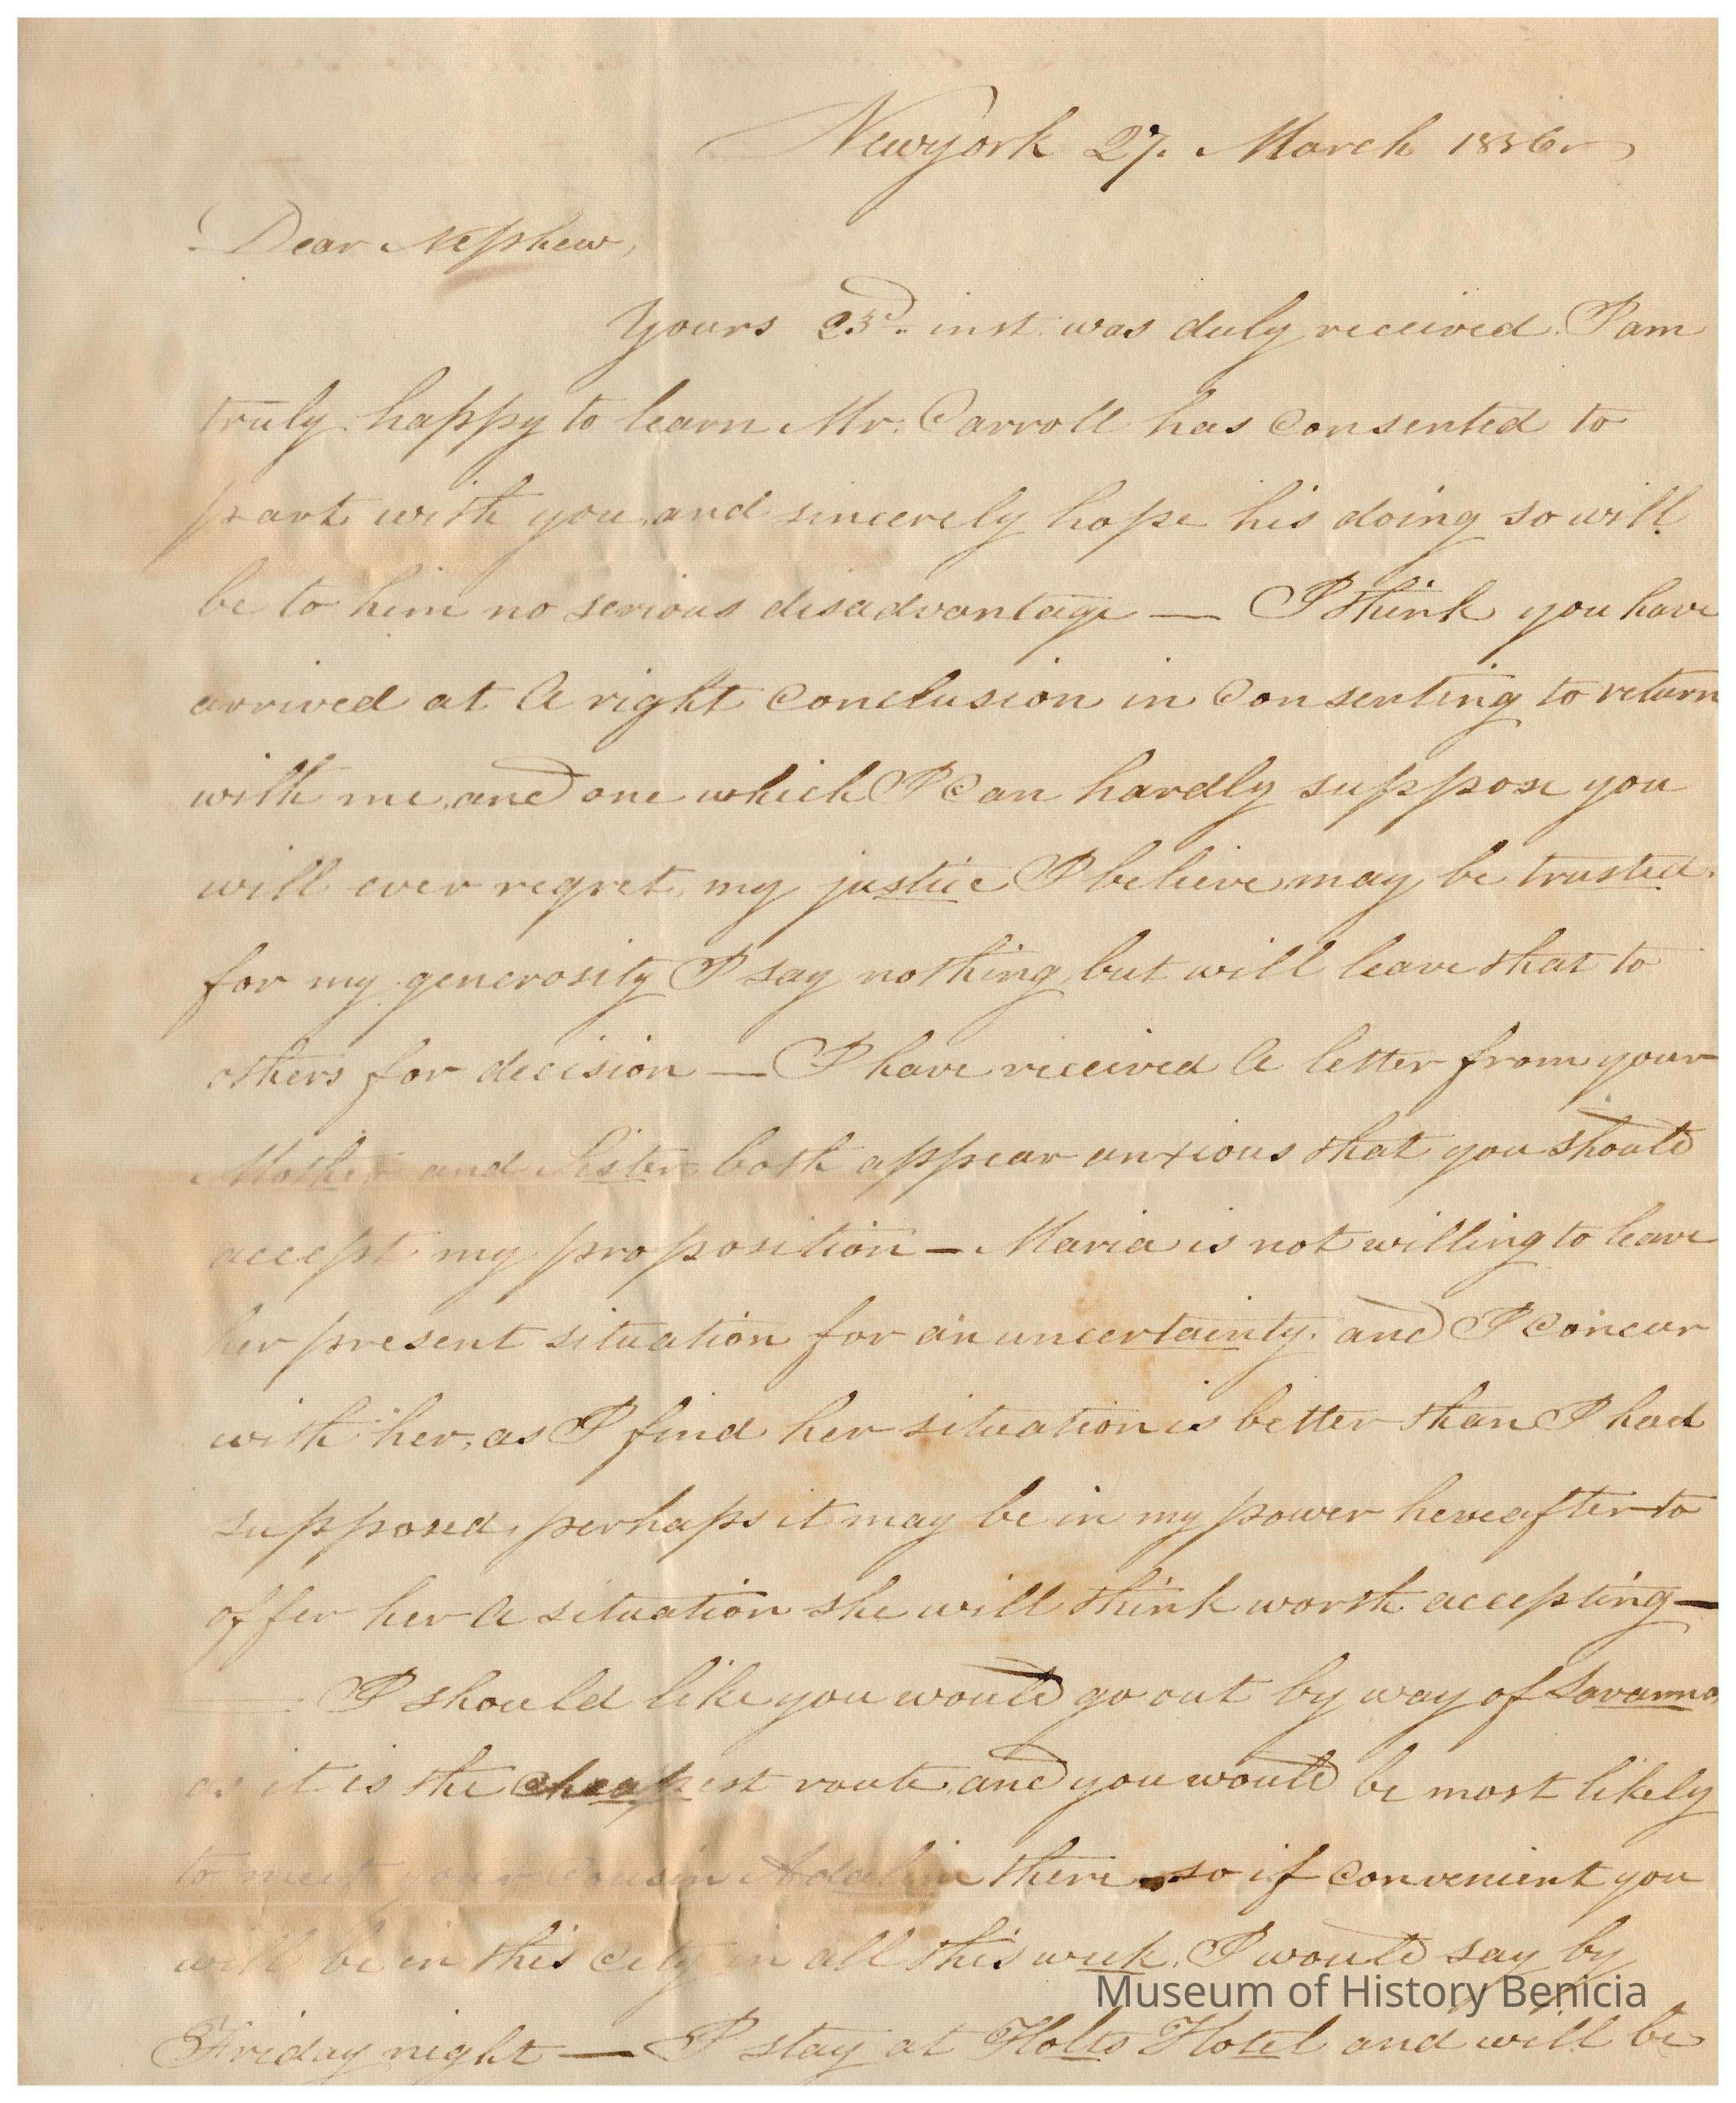 Newyork 27. March 1836
Dear Nephew,
Yours 23d. inst. was duly received. I am
truly happy to learn Mr. Carroll has consented to
part with you, and sincerely hope his doing so will
be to him no serious disadvantage — I think you have
arrived at a right conclusion in consenting to return
with me, and one which I can hardly suppose you
will ever regret, my justice I believe may be trusted.
for my generosity I say nothing, but will leave that to
others for decision — I have received a letter from your
Mother and Sister, both appear anxious that you should
accept my proposition — Maria is not willing to leave
her present situation for an uncertainty, and I concur
with her, as I find her situation is better than I had
supposed, perhaps it may be in my power hereafter to
offer her a situation she will think worth accepting —
— I should like you would go out by way of Savanna,
as it is the cheapest route, and you would be most likely
to meet your cousin Adaline there, so if convenient you
will be in this city in all this week. I would say by
Friday night — I stay at Holts Hotel and will be
Museum of History Benicia